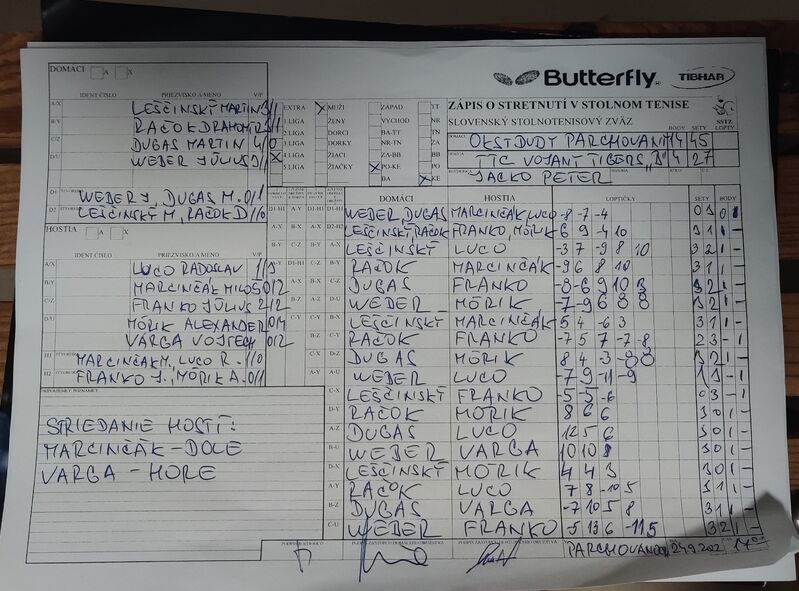 DOMÁCI A X
Butterfly TIBHAR
IDENT.ČÍSLO PRIEZVISKO A MENO V/P
A/X LEŠČINSKÝ MARTIN 3/1
B/Y RAČOK DRAHOMÍR 3/1
C/Z DUGAS MARTIN 4/0
D/U WEBER JÚLIUS
EXTRA MUŽI ZÁPAD TT
1 LIGA ŽENY VÝCHOD NR
2 LIGA DORCI BA-TT TN
3 LIGA DORKY NR-TN ZA
4 LIGA ŽIACI ZA-BB BB
5 LIGA ŽIAČKY PO-KE PO
BA KE
ZÁPIS O STRETNUTÍ V STOLNOM TENISE
SLOVENSKÝ STOLNOTENISOVÝ ZVÄZ
SSTZ
BODY SETY LOPTY
DOMÁCI OKST DUDY PARCHOVANY 14 45
HOSTIA TTC VOJANY TIGERS "B" 4 27
JACKO PETER
D1 WEBER J, DUGAS M. 0/1
D2 LEŠČINSKÝ M, RAČOK D 1/0
HOSTIA A X
IDENT.ČÍSLO PRIEZVISKO A MENO V/P
A/X LUCO RADOSLAV 1/3
B/Y MARCINČÁK MILOŠ 0/2
C/Z FRANKO JÚLIUS 2/2
D/U MÓRIK ALEXANDER 0/4
VARGA VOJTECH 0/2
H1 MARCINČÁK M, LUCO R. 1/0
H2 FRANKO J., MÓRIK A. 0/1
STRIEDANIE HOSTÍ:
MARCINČÁK - DOLE
VARGA - HORE
DOMÁCI HOSTIA LOPTIČKY SETY BODY
D1-H1 WEBER, DUGAS MARCINČÁK, LUCO -8 -7 -4 0 3 0 1
D2-H2 LEŠČINSKÝ, RAČOK FRANKO, MÓRIK 6 9 -4 10 3 1 1 -
LEŠČINSKÝ LUCO -3 7 -9 8 10 3 2 1 -
RAČOK MARCINČÁK -9 6 8 10 3 1 1 -
DUGAS FRANKO -8 -6 9 10 3 3 2 1 -
WEBER MÓRIK -7 -9 6 8 8 3 2 1 -
LEŠČINSKÝ MARCINČÁK 5 4 -6 3 3 1 1 -
RAČOK FRANKO -7 5 7 -7 -8 2 3 - 1
DUGAS MÓRIK 8 4 3 2 1 -
WEBER LUCO -7 9 -11 -9 1 3 - 1
C-X LEŠČINSKÝ FRANKO -5 -5 -6 0 3 - 1
D-Y RAČOK MÓRIK 8 6 6 3 0 1 -
A-Z DUGAS LUCO 12 5 6 3 0 1 -
B-U WEBER VARGA 10 10 8 3 0 1 -
D-X LEŠČINSKÝ MÓRIK 4 4 3 3 0 1 -
A-Y RAČOK LUCO 7 8 -10 5 3 1 1 -
B-Z DUGAS VARGA -7 10 5 8 3 1 1 -
C-U WEBER FRANKO -5 13 6 -11 5 3 2 1 -